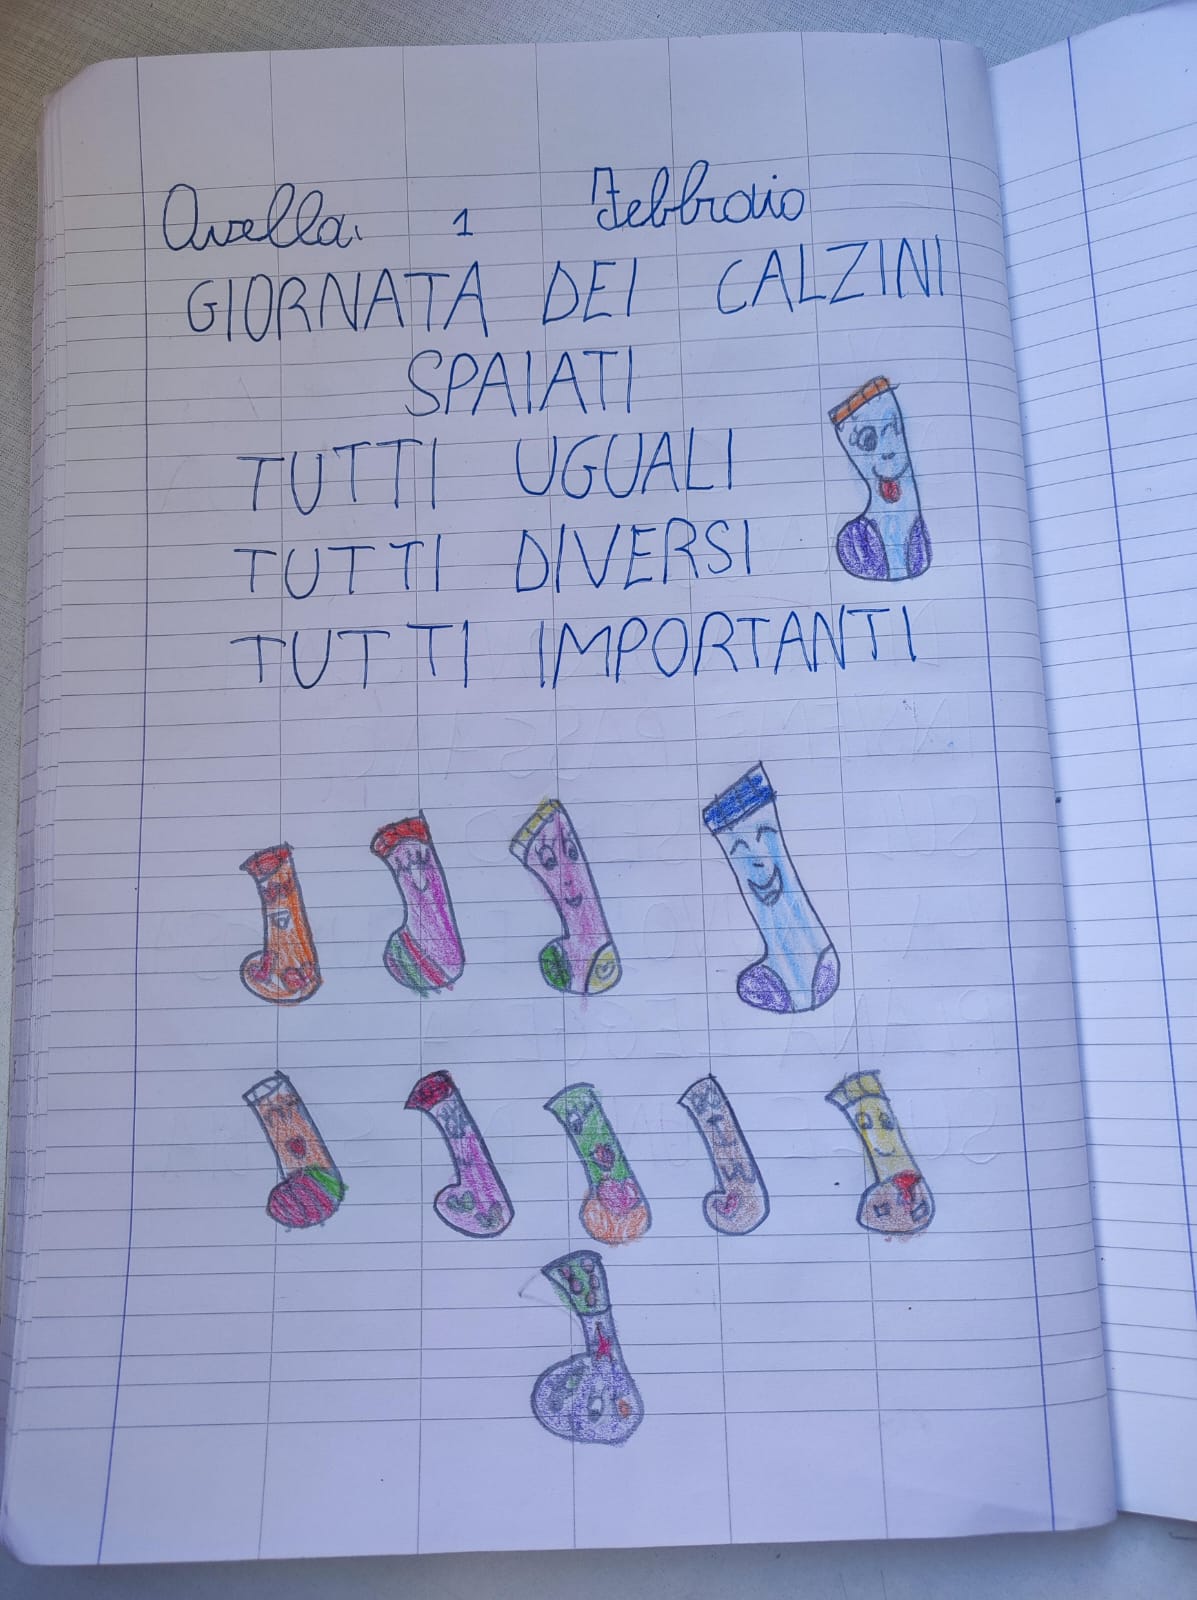 Avella. 1 Febbraio
GIORNATA DEI CALZINI
SPAIATI
TUTTI UGUALI
TUTTI DIVERSI
TUTTI IMPORTANTI